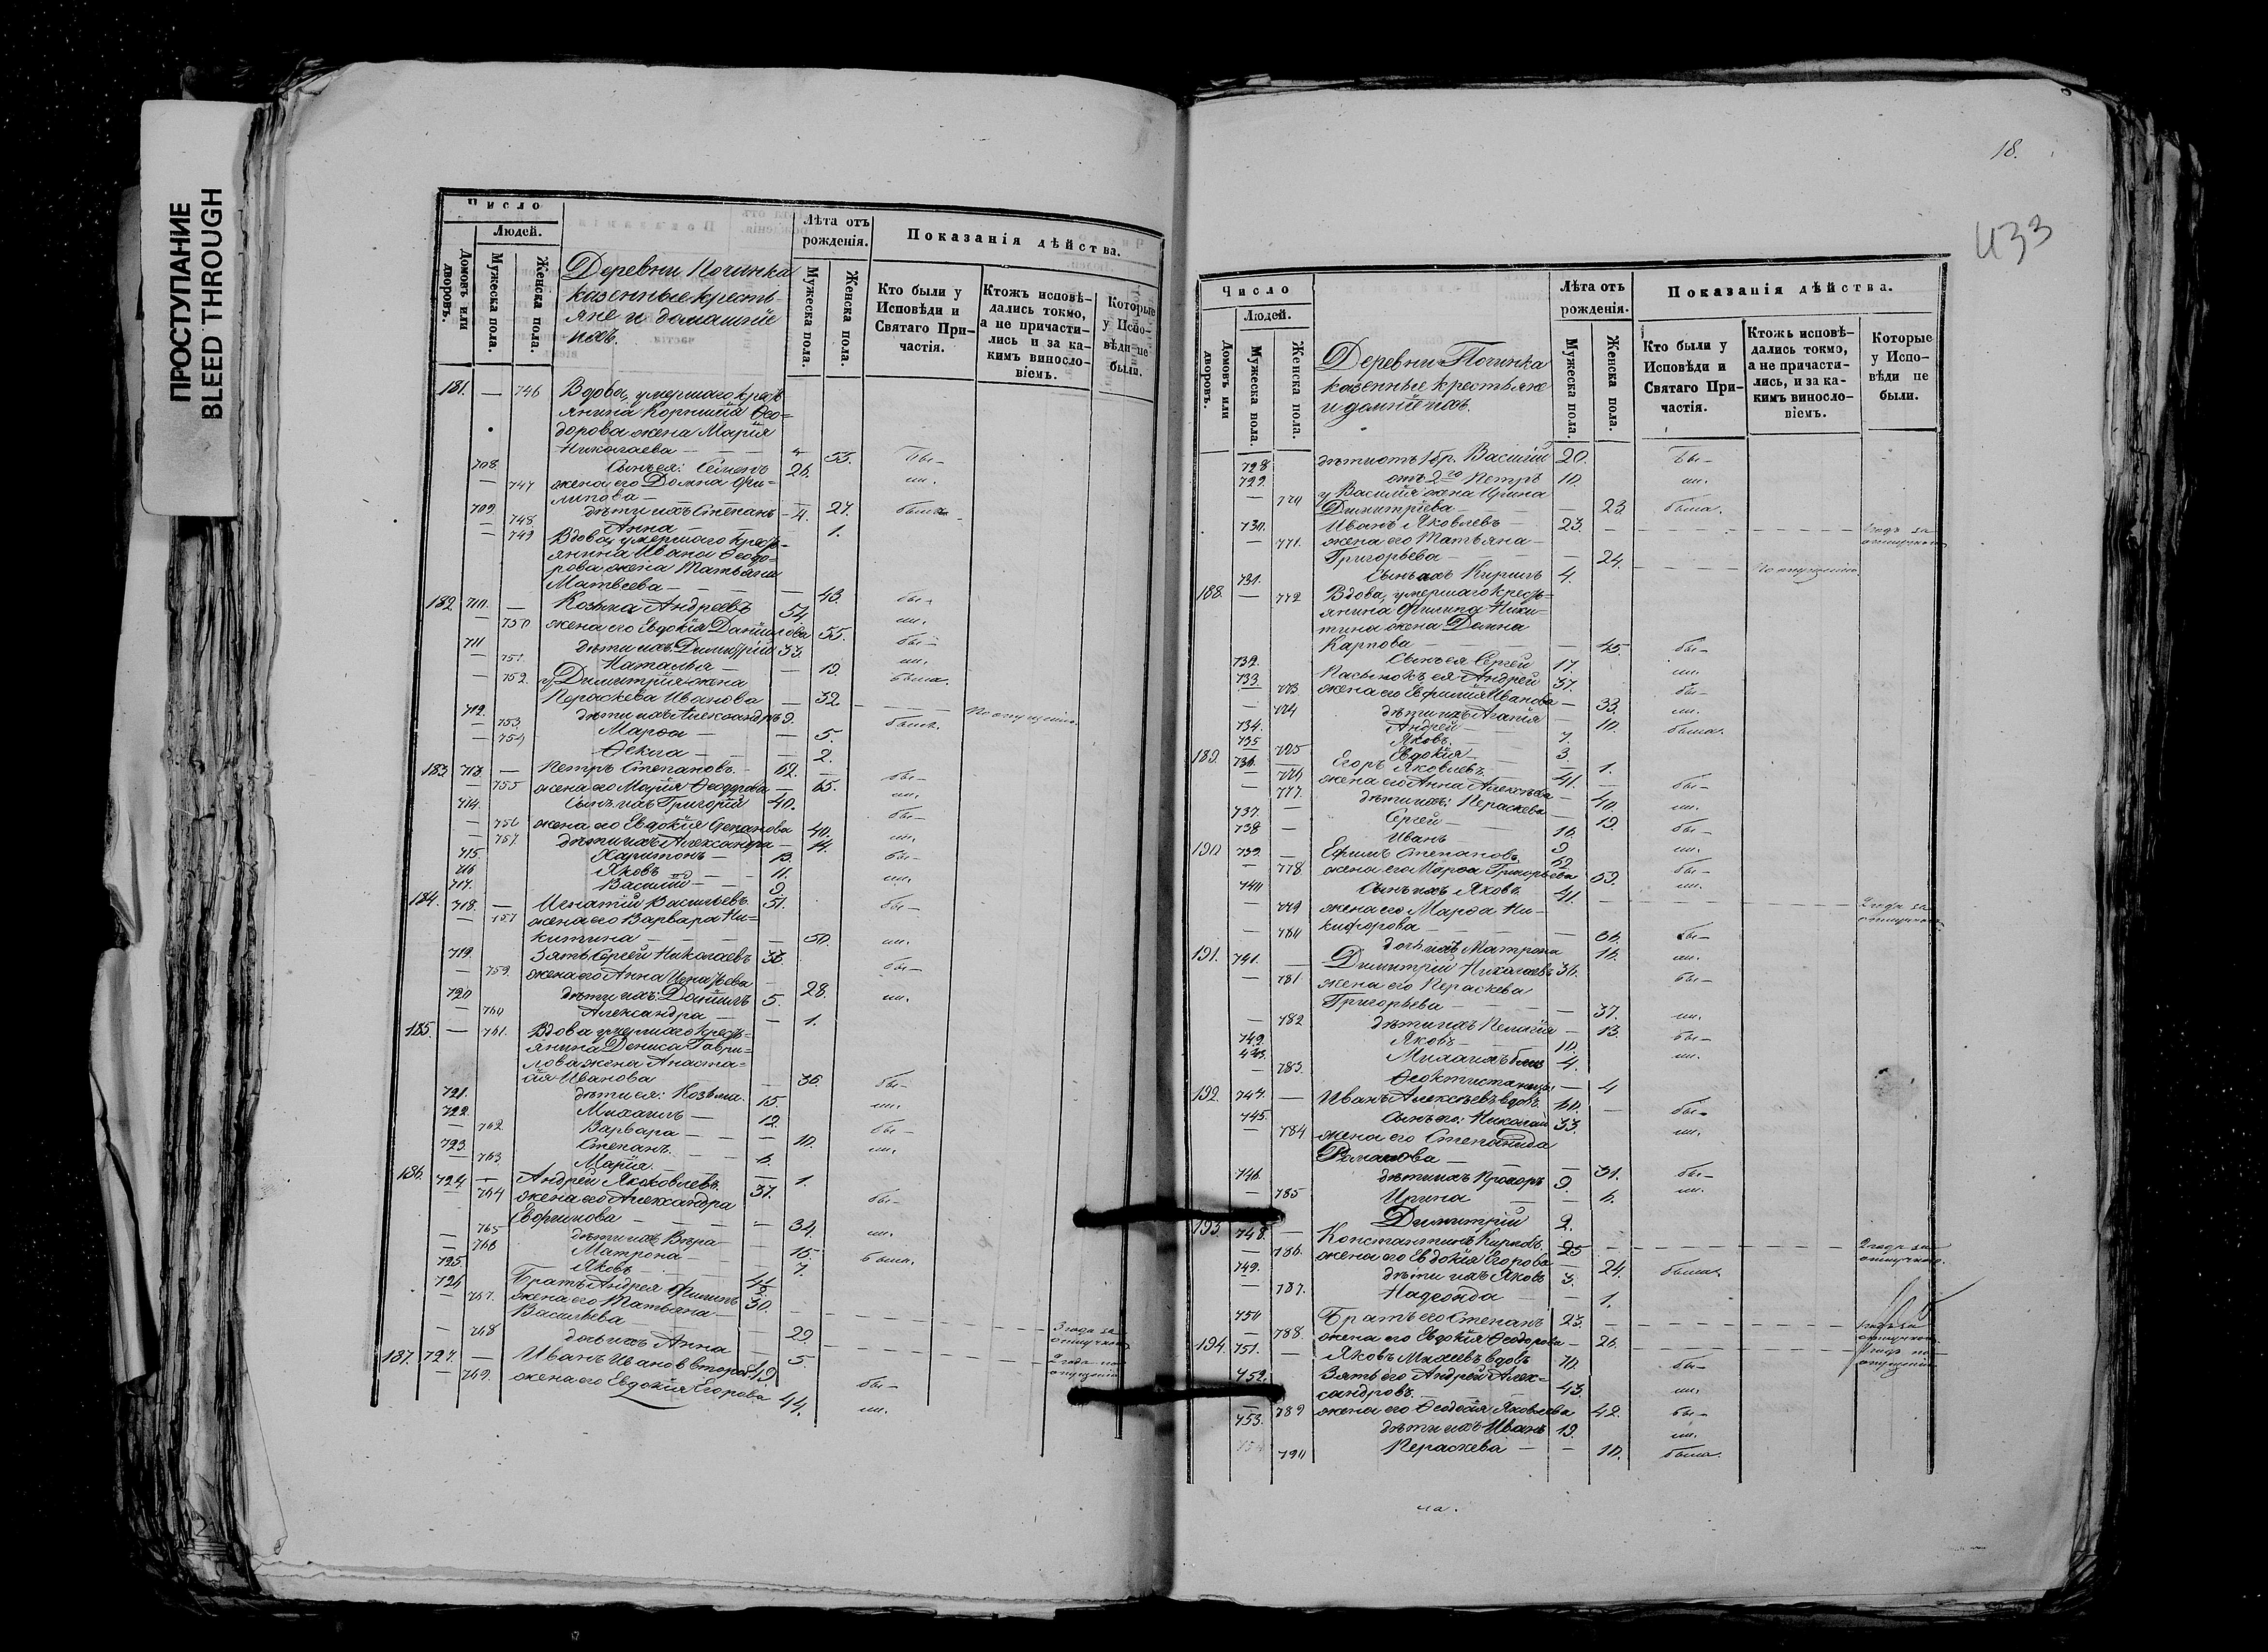 ПРОСТУПАНИЕ
BLEED THROUGH
Число
Людей.
Домовъ или дворовъ.
Мужеска пола.
Женска пола.
Деревни Починка
казенные кресть-
яне и домашніе
ихъ.
Лѣта отъ рожденія.
Мужеска пола.
Женска пола.
Показанія дѣйства.
Кто были у Исповѣди и Святаго Причастія.
Ктожъ исповѣ-
дались токмо,
а не причасти-
лись и за ка-
кимъ виносло-
віемъ.
Которые
у Испо-
вѣди не
были.
181. — 746 Вдова, умершаго кресть-
янина Корнилія Ѳео-
дорова жена Марія
Николаева — 53. бы-
708. Сынъ ея: Семенъ 26. ли.
— 747 жена его Домна Фи-
липова — 27. была.
709. дѣти ихъ Степанъ — 4.
— 748 Анна — 1.
— 749 Вдова, умершаго кресть-
янина Ивана Ѳеодо-
рова жена Татьяна
Матвѣева — 43. бы-
182 710. — Козьма Андреевъ 54. ли.
— 750 жена его Евдокія Даніилова 55. бы-
711 дѣти ихъ Димитрій 33. ли.
— 751. Наталья — 19. была.
— 752. у Димитрія жена
Параскева Иванова — 32 По опущенію.
712. дѣти ихъ Александръ 9. былъ.
— 753 Марѳа — 5.
— 754 Ѳекла — 2.
183 713. — Петръ Степановъ 62. бы-
— 755 жена его Марія Ѳеодорова — 65. ли.
714. Сынъ ихъ Григорій 40. бы-
— 756 жена его Евдокія Степанова 40. ли.
— 757. дѣти ихъ Александра — 14. бы-
715. Харитонъ — 13. ли.
716 Яковъ — 11.
717. Василій — 9.
184. 718. — Игнатій Васильевъ 51. бы-
— жена его Варвара Ни-
китина — 50. ли.
719. Зять Сергей Николаевъ бы-
— 759. жена его Анна Игнатьева 28. ли.
720 дѣти ихъ: Даніилъ 5.
— 760 Александра — 1.
185. — 761. Вдова умершаго кресть-
янина Дениса Гаври-
лова жена Анаста-
сія Иванова — 36. бы-
721. дѣти ея: Козьма. 15. ли.
722. Михаилъ — 12. бы-
— 762. Варвара — 10. ли.
723. Степанъ — 6.
— 763. Марія — 1.
186. 724. — Андрей Яковлевъ 37. бы-
— 764 жена его Александра
Ефимова — 34. ли.
— 765 дѣти ихъ Вѣра — 15. была.
— 766 Матрона — 7.
725. Яковъ —
726 Братъ Андрея Филипъ 30. 3 года за отлучкою
— 767. жена его Татьяна
Васильева — 29
— 768 дочь ихъ Анна — 5.
187. 727. — Иванъ Ивановъ вторый 49 бы-
— 769. жена его Евдокія Егорова 44. ли.
18.
433
Число
Людей.
Домовъ или дворовъ.
Мужеска пола.
Женска пола.
Деревни Починка
казенные крестьяне
и домнiе ихъ.
Лѣта отъ рожденія.
Мужеска пола.
Женска пола.
Показанія дѣйства.
Кто были у Исповѣди и Святаго Причастія.
Ктожъ исповѣ-
дались токмо,
а не причасти-
лись, и за ка-
кимъ винослo-
віемъ.
Которые
у Испо-
вѣди не
были.
728 дѣти отъ 1 бр. Василій 20. бы-
729. отъ 2го Петръ 10. ли.
— 770 у Василія жена Ирина
Димитріева — 23 была.
730. Иванъ Яковлевъ 23.
— 771. жена его Татьяна
Григорьева — 24. По опущенію.
731. Сынъ ихъ Кирилъ 4.
188. — 772 Вдова, умершаго кресть-
янина Филипа Ники-
тина жена Домна
Карпова — 45. бы-
732. Сынъ ея Сергей 17. ли.
733 Пасынокъ ея Андрей 37. бы-
— 773 жена его Евфимія Иванова — 33. ли.
— 774 дѣти ихъ Агапія — 10. была.
734. Андрей — 7.
735 Яковъ 3.
— 775 Евдокія — 1.
189. 736. Егоръ Яковлевъ 41. бы-
— 776 жена его Анна Алексѣева — 40. ли.
— 777. дѣти ихъ: Параскева — 19. бы-
737. Сергей — 16. ли.
738 — Иванъ 9
190 739 — Ефимъ Степановъ бы-
— 778 жена его Марѳа Григорьева 59. ли.
740 Сынъ ихъ Яковъ 41.
— 779 жена его Марѳа Ни-
кифорова — 36. бы-
— 780 дочь ихъ Матрона 16. ли.
191. 741. — Димитрій Николаевъ 36. бы-
— 781 жена его Параскева
Григорьева — 37. ли.
— 782 дѣти ихъ Пелагія — 13. бы-
742. Яковъ — 10. ли.
743. Михаилъ близ 4.
— 783. Ѳеоктиста нецы — 4
192. 744. — Иванъ Алексѣевъ вдовъ 60. бы-
745. Сынъ его: Николай 33. ли.
— 784 жена его Степанида
Романова — 31. бы-
746. дѣти ихъ Прохоръ 9. ли.
— 785 Ирина — 6.
Димитрій 2.
193. 748. — Константинъ Кириловъ 25 2 года за отлучкою.
— 786. жена его Евдокія Егорова — 24. была.
749. дѣти ихъ Яковъ 3.
— 787. Надежда — 1.
750 Братъ его Степанъ 23.
— 788. жена его Евдокія Ѳеодорова — 26.
194. 751. — Яковъ Михеевъ вдовъ 70. бы-
752. Зять его Андрей Алек-
сандровъ — 43. ли.
— 789 жена его Ѳеодосія Яковлева 42. бы-
753. дѣти ихъ Иванъ 19. ли.
790 Параскева — 10. была.